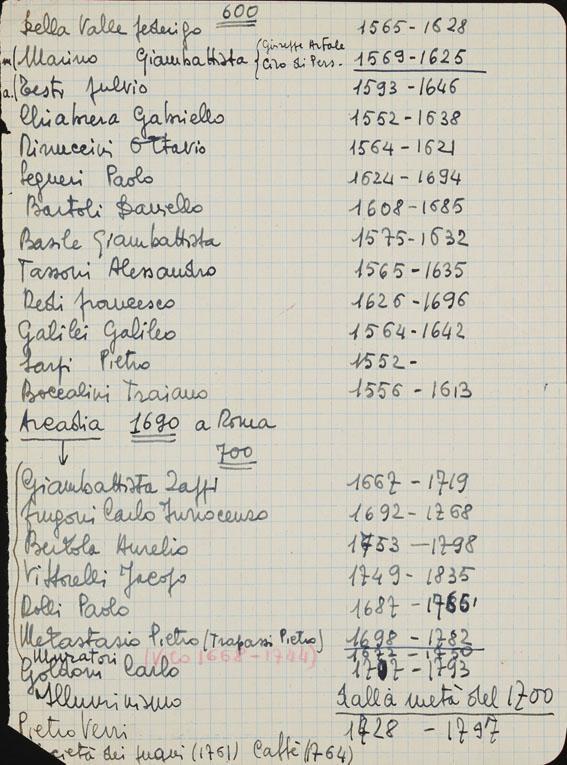 600
Della Valle Federigo 1565-1628
Marino Giambattista {Giuseppe Artale Ciro di Pers. 1569-1625
Testi Fulvio 1593-1646
Chiabrera Gabriello 1552-1638
Rinuccini Ottavio 1564-1621
Segneri Paolo 1624-1694
Bartoli Daniello 1608-1685
Basile Giambattista 1575-1632
Tassoni Alessandro 1565-1635
Redi Francesco 1626-1696
Galilei Galileo 1564-1642
Sarpi Pietro 1552-
Boccalini Traiano 1556-1613
Arcadia 1690 a Roma
700
Giambattista Zappi 1667-1719
Frugoni Carlo Innocenzo 1692-1768
Bertola Aurelio 1753-1798
Vittorelli Jacopo 1749-1835
Rolli Paolo 1687-1765
Metastasio Pietro (Trapassi Pietro) 1698-1782
Muratori (Vico 1668-1744)
Goldoni Carlo 1707-1793
Illuminismo dalla metà del 1700
Pietro Verri 1728-1797
Società dei pugni (1761) Caffè (1764)